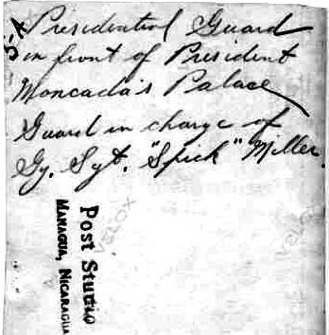 5-A
Presidential Guard
in front of President
Moncada's Palace
Guard in charge of
Gy. Sgt. "Spick" Miller
Post Studio
Managua, Nicaragua
VELOX
VELOX